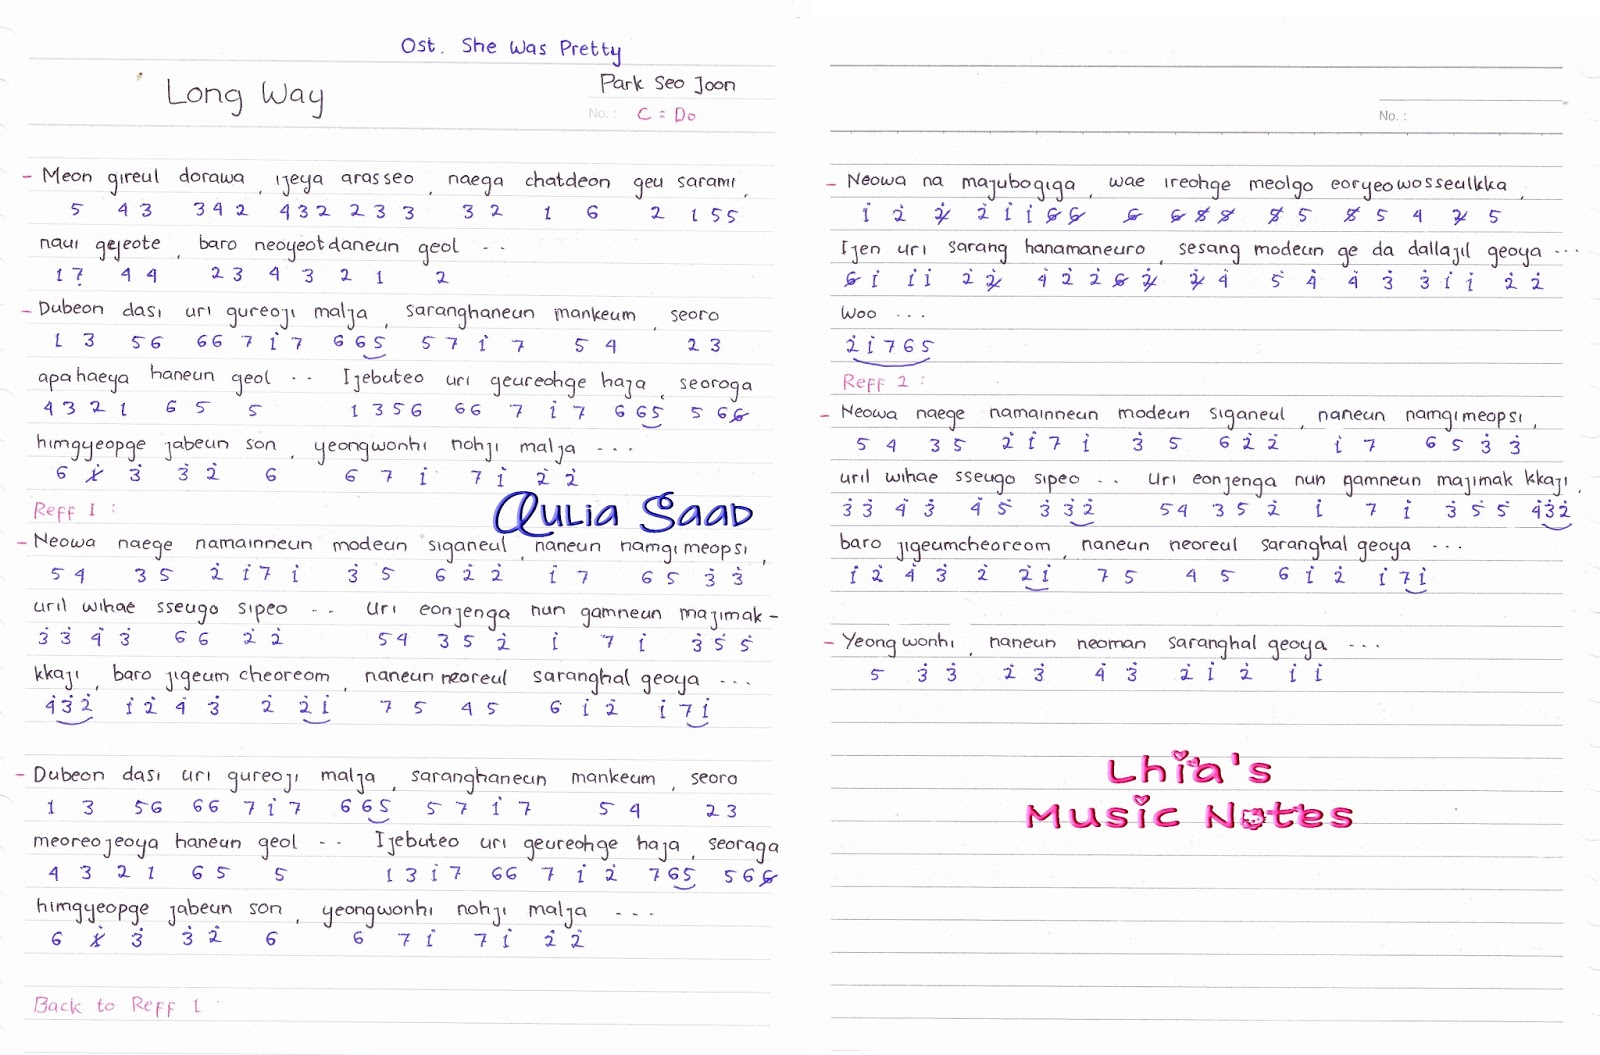 Ost. She Was Pretty
Long Way
Park Seo Joon
No. : C = Do
- Meon gireul dorawa, ijeya arasseo, naega chatdeon geu sarami,
5 4 3 3 4 2 4 3 2 2 3 3 3 2 1 6 2 1 5 5
naui gejeote, baro neoyeotdaneun geol - -
1 7 4 4 2 3 4 3 2 1 2
- Dubeon dasi uri gureoji malja, saranghaneun mankeum, seoro
1 3 5 6 6 6 7 1̇ 7 6 6 5 5 7 1̇ 7 5 4 2 3
apahaeya haneun geol - - Ijebuteo uri geureohge haja, seoroga
4 3 2 1 6 5 5 1 3 5 6 6 6 7 1̇ 7 6 6 5 5 6 6̸
himgyeopge jabeun son, yeongwonhi nohji malja - - -
6 1̸̇ 3̇ 3̇ 2̇ 6 6 7 1̇ 7 1̇ 2̇ 2̇
Aulia Saad
Reff 1 :
- Neowa naege namainneun modeun siganeul, naneun namgimeopsi,
5 4 3 5 2̇ 1̇ 7 1̇ 3̇ 5 6 2̇ 2̇ 1̇ 7 6 5 3̇ 3̇
uril wihae sseugo sipeo - - Uri eonjenga nun gamneun majimak -
3̇ 3̇ 4̇ 3̇ 6 6 2̇ 2̇ 5 4 3 5 2̇ 1̇ 7 1̇ 3̇ 5̇ 5̇
kkaji, baro jigeum cheoreom, naneun neoreul saranghal geoya - - -
4̇ 3̇ 2̇ 1̇ 2̇ 4̇ 3̇ 2̇ 2̇ 1̇ 7 5 4 5 6 1̇ 2̇ 1̇ 7 1̇
- Dubeon dasi uri gureoji malja, saranghaneun mankeum, seoro
1 3 5 6 6 6 7 1̇ 7 6 6 5 5 7 1̇ 7 5 4 2 3
meoreojeoya haneun geol - - Ijebuteo uri geureohge haja, seoraga
4 3 2 1 6 5 5 1 3 1̇ 7 6 6 7 1̇ 2̇ 7 6 5 5 6 6̸
himgyeopge jabeun son, yeongwonhi nohji malja - - -
6 1̸̇ 3̇ 3̇ 2̇ 6 6 7 1̇ 7 1̇ 2̇ 2̇
Back to Reff 1
No. :
- Neowa na majubogiga, wae ireohge meolgo eoryeowosseulkka,
1̇ 2̇ 2̸̇ 2̇ 1̇ 1̇ 6̸ 6̸ 6̸ 6̸ 5̸ 5̸ 5̸ 5 5̸ 5 4 2̸ 5
Ijen uri sarang hanamaneuro, sesang modeun ge da dallajil geoya - - -
6̸ 1̇ 1̇ 1̇ 2̇ 2̸̇ 4̇ 2̇ 2̇ 6̸ 2̸̇ 2̸̇ 4̇ 5̇ 4̇ 4̇ 3̇ 3̇ 1̇ 1̇ 2̇ 2̇
Woo - - -
2̇ 1̇ 7 6 5
Reff 2 :
- Neowa naege namainneun modeun siganeul, naneun namgimeopsi,
5 4 3 5 2̇ 1̇ 7 1̇ 3̇ 5 6 2̇ 2̇ 1̇ 7 6 5 3̇ 3̇
uril wihae sseugo sipeo - - Uri eonjenga nun gamneun majimak kkaji,
3̇ 3̇ 4̇ 3̇ 4̇ 5̇ 3̇ 3̇ 2̇ 5 4 3 5 2̇ 1̇ 7 1̇ 3̇ 5̇ 5̇ 4̇ 3̇ 2̇
baro jigeumcheoreom, naneun neoreul saranghal geoya - - -
1̇ 2̇ 4̇ 3̇ 2̇ 2̇ 1̇ 7 5 4 5 6 1̇ 2̇ 1̇ 7 1̇
- Yeongwonhi, naneun neoman saranghal geoya - - -
5 3̇ 3̇ 2̇ 3̇ 4̇ 3̇ 2̇ 1̇ 2̇ 1̇ 1̇
Lhia's
Music Notes